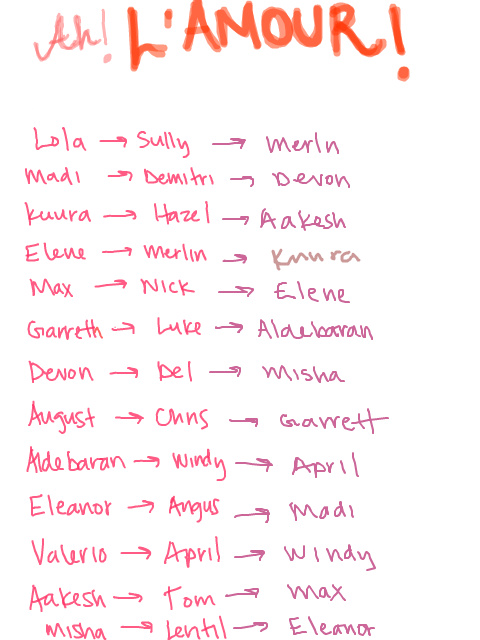 Ah! L'AMOUR!
Lola → Sully → Merln
Madi → Demitri → Devon
Kuura → Hazel → Aakesh
Elene → Merlin → Kuura
Max → Nick → Elene
Garreth → Luke → Aldebaran
Devon → Del → Misha
August → Chris → Garrett
Aldebaran → Windy → April
Eleanor → Angus → Madi
Valerio → April → Windy
Aakesh → Tom → Max
Misha → Lentil → Eleanor